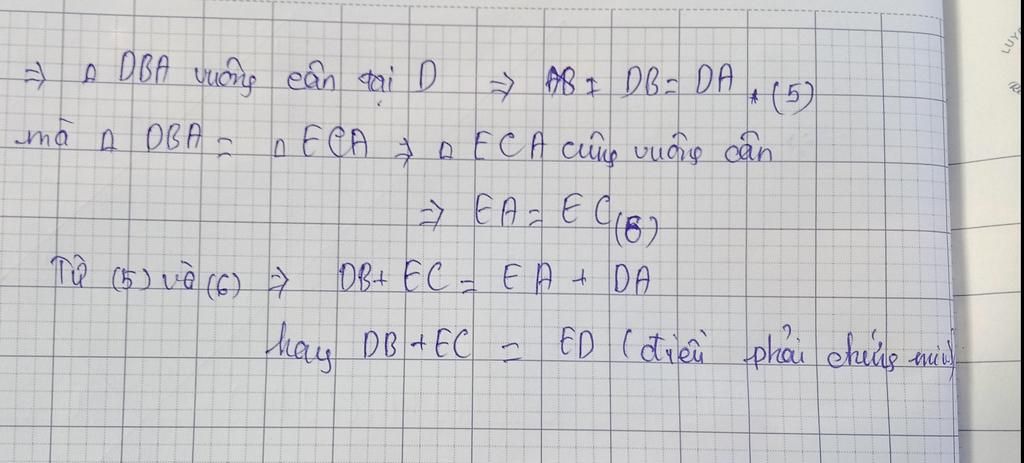 ⇒ Δ DBA vuông cân tại D ⇒ DB = DA (5)
mà Δ DBA = Δ ECA ⇒ Δ ECA cũng vuông cân
⇒ EA = EC (6)
Từ (5) và (6) ⇒ DB + EC = EA + DA
hay DB + EC = ED (điều phải chứng minh)